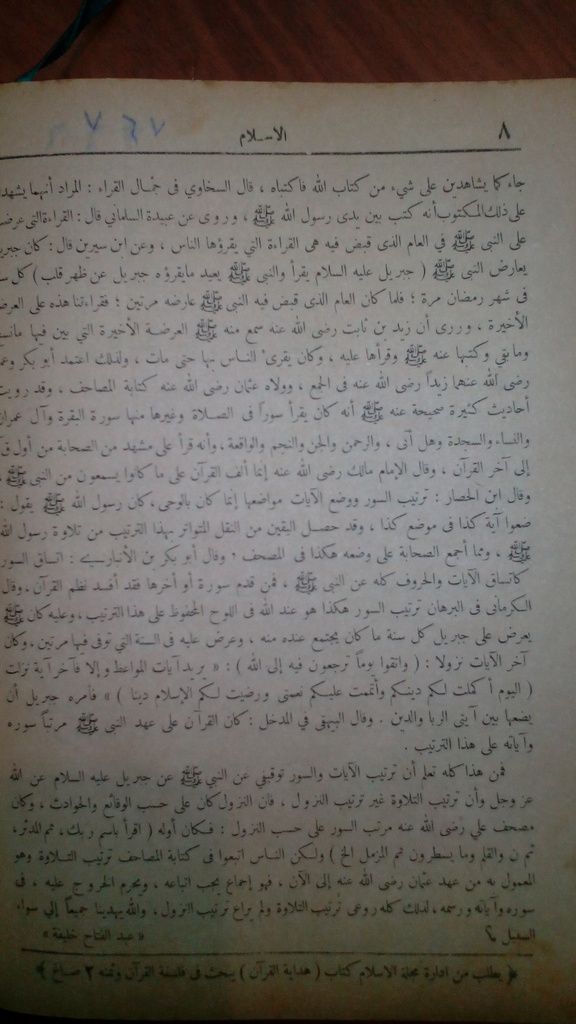 ٨
الاسلام
٧٦٧
جاءكما يشاهدين على شيء من كتاب الله فاكتباه ، قال السخاوى فى جمال القراء : المراد أنهما يشهدا
على ذلك المكتوب أنه كتب بين يدى رسول الله ﷺ ، وروى عن عبيدة السلمانى قال : القراءة التى عرضت
على النبى ﷺ فى العام الذى قبض فيه هى القراءة التى يقرؤها الناس ، وعن ابن سيرين قال : كان جبريل
يعارض النبى ﷺ ( جبريل عليه السلام يقرأ والنبى ﷺ يعيد مايقرؤه جبريل عن ظهر قلب ) كل سـ
فى شهر رمضان مرة ؛ فلما كان العام الذى قبض فيه النبى ﷺ عارضه مرتين ؛ فقراءتنا هذه على العرضـ
الأخيرة ، وروى أن زيد بن ثابت رضى الله عنه سمع منه ﷺ العرضة الأخيرة التى بين فيها مانسـ
ومابقي وكتبها عنه ﷺ وقرأها عليه ، وكان يقرئ الناس بها حتى مات ، ولذلك اعتمد أبو بكر وعمـ
رضى الله عنهما زيداً رضى الله عنه فى الجمع ، وولاه عثمان رضى الله عنه كتابة المصاحف ، وقد رويت
أحاديث كثيرة صحيحة عنه ﷺ أنه كان يقرأ سوراً فى الصلاة وغيرها منها سورة البقرة وآل عمران
والنساء والسجدة وهل أتى ، والرحمن والجن والنجم والواقعة ، وأنه قرأ على مشهد من الصحابة من أول ق
إلى آخر القرآن ، وقال الإمام مالك رضى الله عنه إنما ألف القرآن على ما كانوا يسمعون من النبى ﷺ ،
وقال ابن الحصار : ترتيب السور ووضع الآيات مواضعها إنما كان بالوحى ، كان رسول الله ﷺ يقول :
ضعوا آية كذا فى موضع كذا ، وقد حصل اليقين من النقل المتواتر بهذا الترتيب من تلاوة رسول الله
ﷺ ، ومما أجمع الصحابة على وضعه هكذا فى المصحف ، وقال أبو بكر بن الأنبارى : اتساق السور
كاتساق الآيات والحروف كله عن النبى ﷺ ، فمن قدم سورة أو أخرها فقد أفسد نظم القرآن ، وقال
الكرمانى فى البرهان ترتيب السور هكذا هو عند الله فى اللوح المحفوظ على هذا الترتيب ، وعليه كان ﷺ
يعرض على جبريل كل سنة ما كان يجتمع عنده منه ، وعرض عليه فى السنة التى توفى فيها مرتين ، وكان
آخر الآيات نزولا : ( واتقوا يوماً ترجعون فيه إلى الله ) : « يريد آيات المواعظ وإلا فآخر آية نزلت
( اليوم أكملت لكم دينكم وأتممت عليكم نعمتى ورضيت لكم الإسلام دينا ) » فأمره جبريل أن
يضعها بين آيتى الربا والدين . وقال البيهقى فى المدخل : كان القرآن على عهد النبى ﷺ مرتباً سوره
وآياته على هذا الترتيب .
فمن هذا كله تعلم أن ترتيب الآيات والسور توقيفى عن النبى ﷺ عن جبريل عليه السلام عن الله
عز وجل وأن ترتيب التلاوة غير ترتيب النزول ، فان النزول كان على حسب الوقائع والحوادث ، وكان
مصحف على رضى الله عنه مرتب السور على حسب النزول : فكان أوله ( اقرأ باسم ربك ، ثم المدثر ،
ثم ن والقلم وما يسطرون ثم المزمل الخ ) ولكن الناس اتبعوا فى كتابة المصاحف ترتيب التلاوة وهو
المعمول به من عهد عثمان رضى الله عنه إلى الآن ، فهو إجماع يجب اتباعه ، ومحرم الخروج عليه ، فى
سوره وآياته ورسمه ، لذلك كله روعى ترتيب التلاوة ولم يراع ترتيب النزول ، والله يهدينا جميعاً إلى سواء
السبيل ؟
« عبد الفتاح خليفة »
﴿ يطلب من ادارة مجلة الاسلام كتاب ( هداية القرآن ) يبحث فى فلسفة القرآن وثمنه ٢ صاغ ﴾